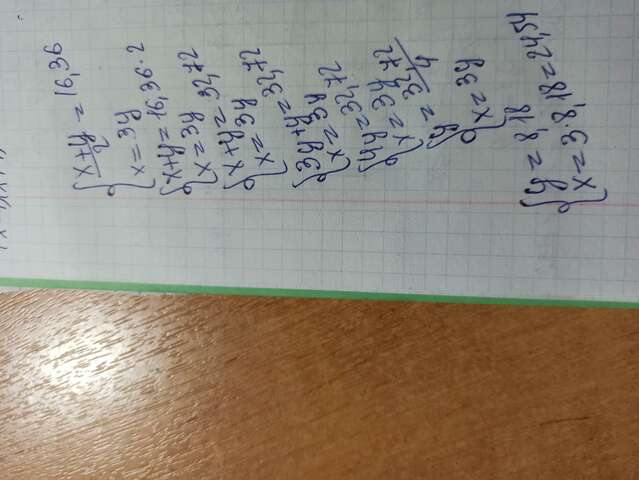 { x+y/2 = 16,36
x = 3y
{ x+y = 16,36 · 2
x = 3y
{ x+y = 32,72
x = 3y
{ 3y+y = 32,72
x = 3y
{ 4y = 32,72
x = 3y
{ y = 32,72/4
x = 3y
{ y = 8,18
x = 3·8,18 = 24,54